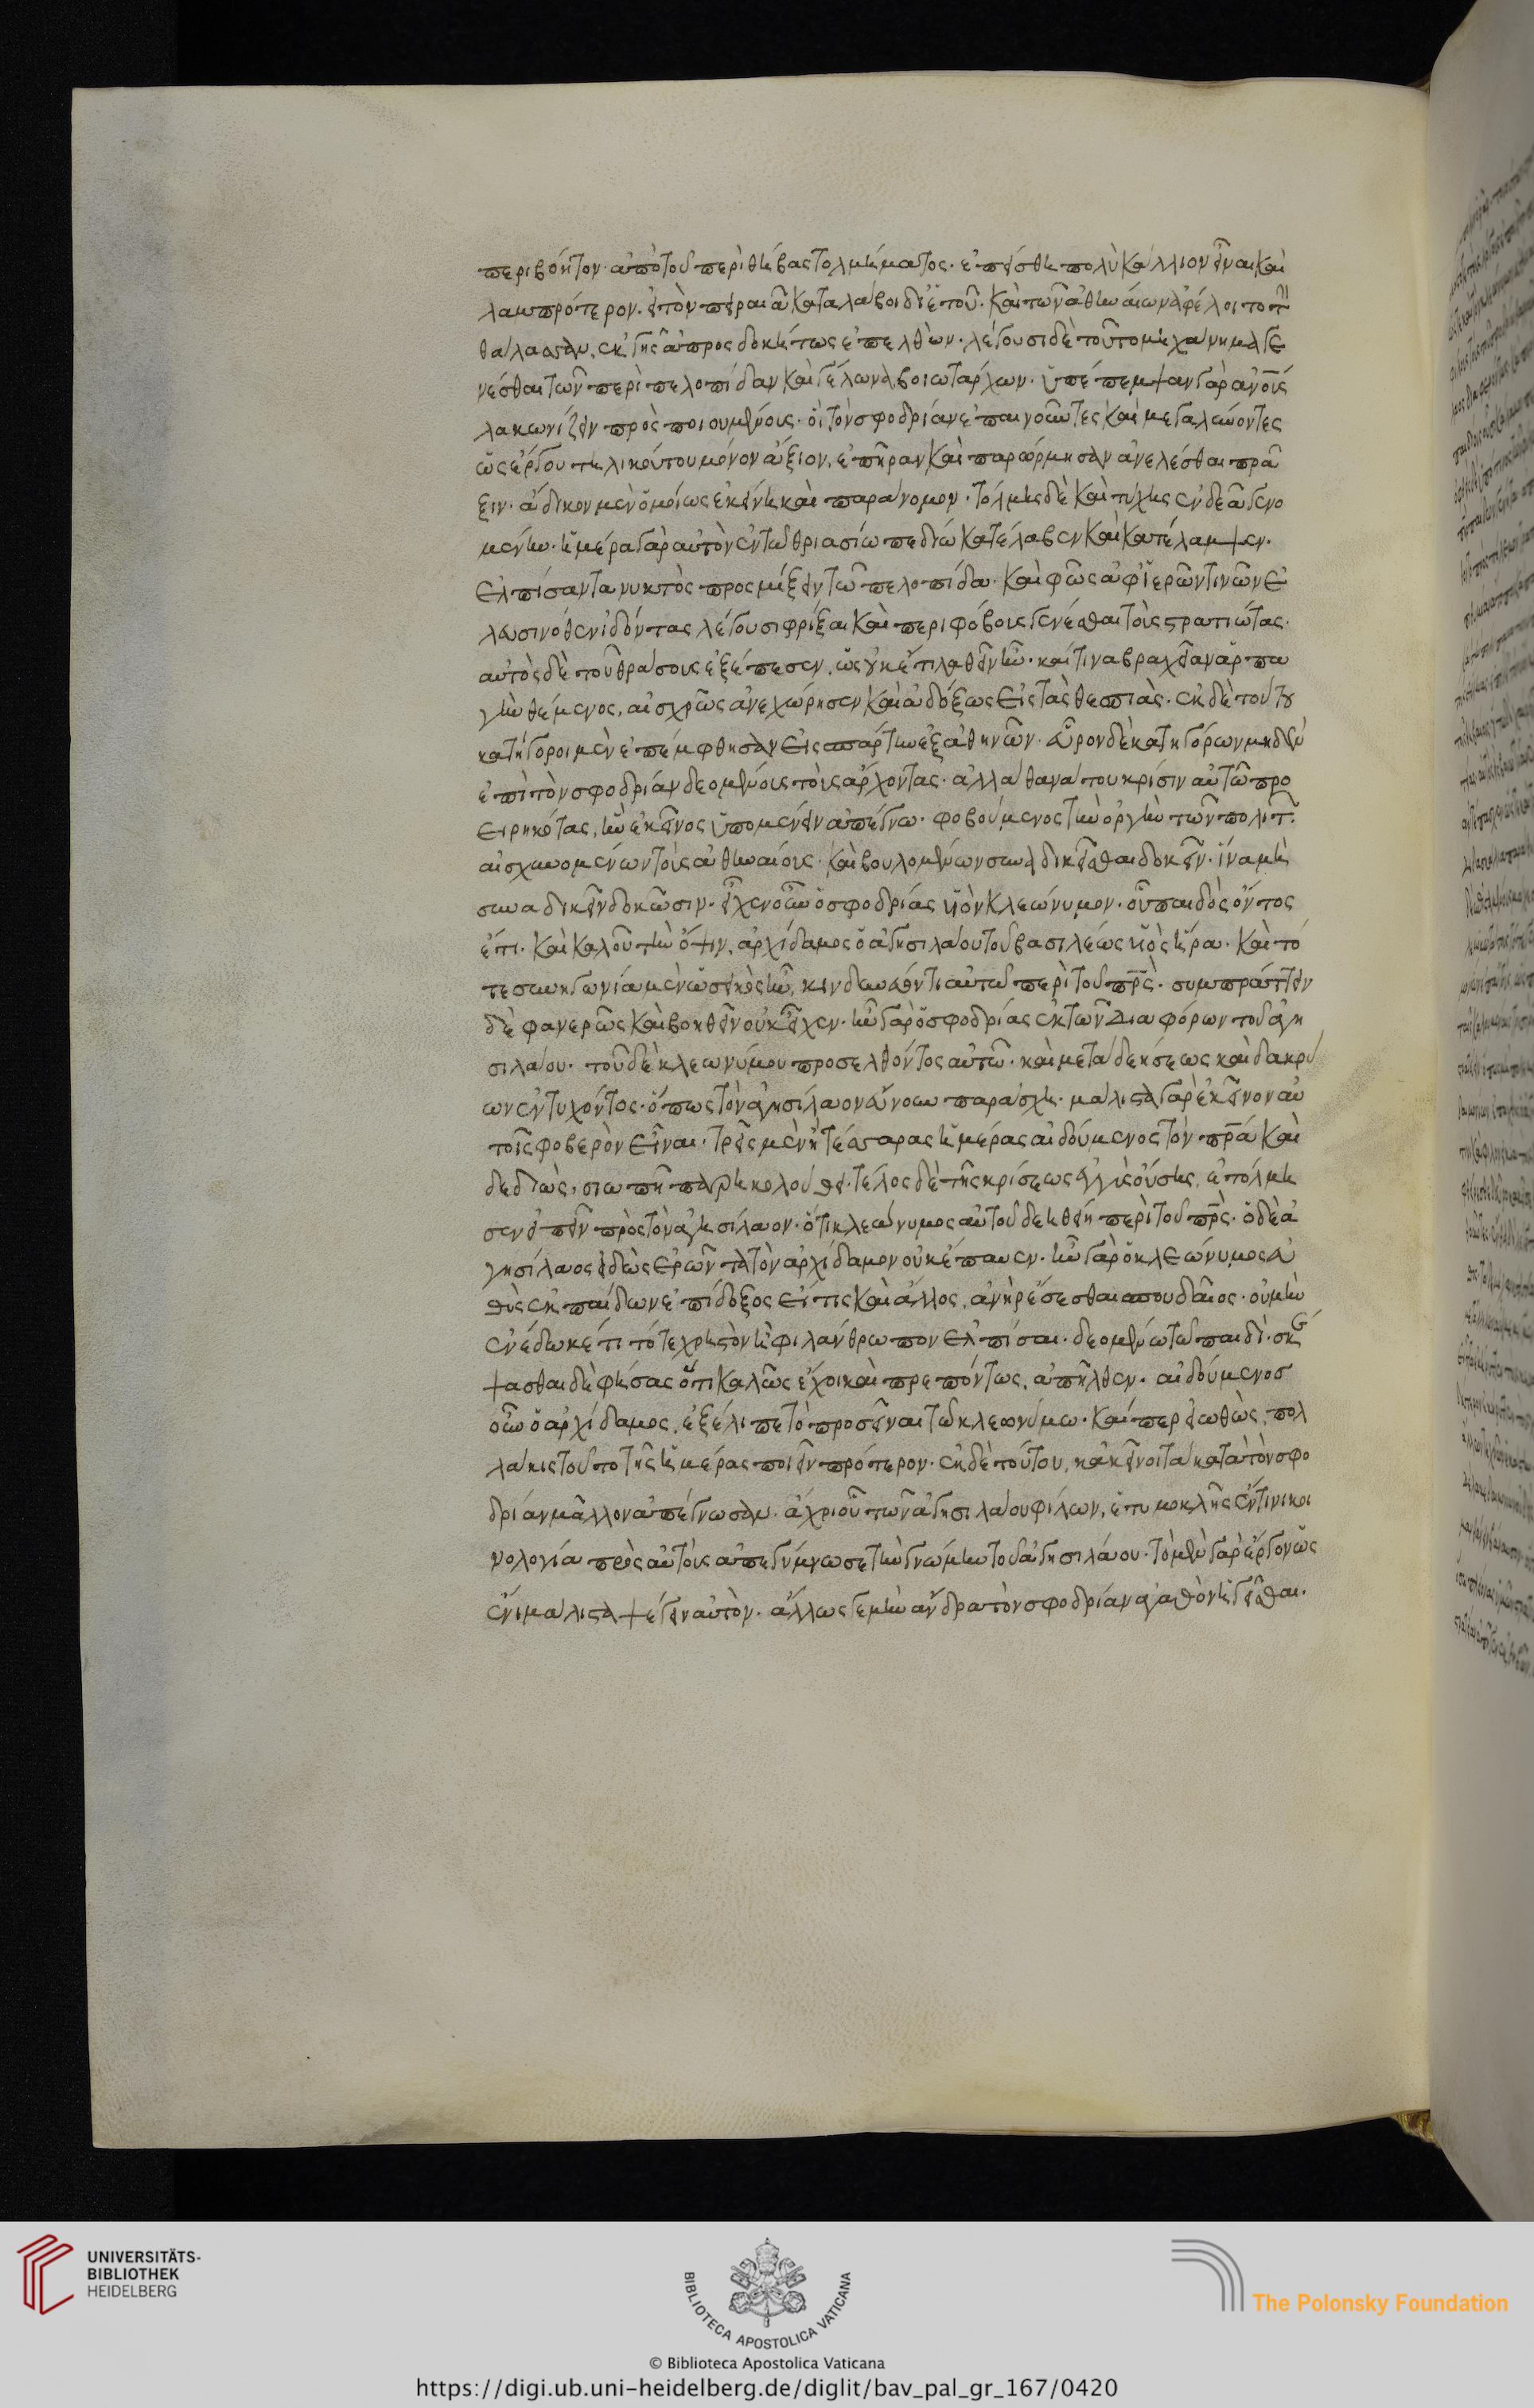 περιβόητον ἀπὸ τοῦ περὶ θήβας τολμήματος· ἐπείσθη πολὺ κάλλιον εἶναι καὶ
λαμπρότερον. εἰ τὸν πειραιᾶ καταλάβοι δι' ἑαυτοῦ. καὶ τῶν ἀθηναίων ἀφέλοιτο τὴν
θάλασσαν, ἐκ γῆς ἀπροσδοκήτως ἐπελθών. λέγουσι δὲ τοῦτο μηχάνημα γε
νέσθαι τῶν περὶ πελοπίδαν καὶ γέλωνα βοιωταρχῶν. ὑπέπεμψαν γὰρ ἀν̅ο̅υ̅ς
λακωνίζειν προσποιουμένους. οἳ τὸν σφοδρίαν ἐπαινοῦντες καὶ μεγαλύνοντες
ὡς ἔργου τηλικούτου μόνον ἄξιον, ἐπῆραν καὶ παρώρμησαν ἀνελέσθαι πρᾶ
ξιν· ἄδικον μὲν ὁμοίως ἐκείνη καὶ παράνομον. τόλμης δὲ καὶ τύχης ἐνδεᾶ γενο
μένην. ἡμέρα γὰρ αὐτὸν ἐν τῶ θριασίω πεδίω κατέλαβεν καὶ κατέλαμψεν.
ἐλπίσαντα νυκτὸς προσμίξειν τῶ πελοπίδα. καὶ φῶς ἀφ' ἱερῶν τινῶν ἐ
λευσινόθεν ἰδόντας λέγουσι φρίξαι καὶ περιφόβους γενέσθαι τοὺς στρατιώτας.
αὐτὸς δὲ τοῦ θράσους ἐξέπεσεν, ὡς οὐκέτι λαθεῖν ἦν. καί τινα βραχεῖαν ἁρπα
γὴν θέμενος, αἰσχρῶς ἀνεχώρησεν καὶ ἀδόξως εἰς τὰς θεσπιὰς. ἐκ δὲ τούτου
κατήγοροι μὲν ἐπέμφθησαν εἰς σπάρτην ἐξ ἀθηνῶν. εὗρον δὲ κατηγόρων μηδὲν
ἐπὶ τὸν σφοδρίαν δεομένους τοὺς ἄρχοντας. ἀλλὰ θανάτου κρίσιν αὐτῶ προ
ειρηκότας, ἣν ἐκεῖνος ὑπομένειν ἀπέγνω. φοβούμενος τὴν ὀργὴν τῶν πολιτῶν
αἰσχυνομένων τοὺς ἀθηναίους. καὶ βουλομένων συναδικεῖσθαι δοκεῖν. ἵνα μὴ
συναδικεῖν δοκῶσιν. εἶχεν οὖν ὁ σφοδρίας υἱὸν κλεώνυμον. οὗ παιδὸς ὄντος
ἔτι. καὶ καλοῦ τὴν ὄψιν, ἀρχίδαμος ὁ ἀγησιλάου τοῦ βασιλέως υἱὸς ἤρα. καὶ τό
τε συνηγωνία μὲν ὡς εἰκὸς ἦν, κινδυνεύοντι αὐτῶ περὶ τοῦ πρ̅ς. συμπράττειν
δὲ φανερῶς καὶ βοηθεῖν οὐκ εἶχεν. ἦν γὰρ ὁ σφοδρίας ἐκ τῶν διαφόρων τοῦ ἀγη
σιλάου. τοῦ δὲ κλεωνύμου προσελθόντος αὐτῶ. καὶ μετὰ δεήσεως καὶ δακρύ
ων ἐντυχόντος. ὅπως τὸν ἀγησίλαον εὔνουν παράσχη. μάλιστα γὰρ ἐκεῖνον αὐ
τοῖς φοβερὸν εἶναι. τρεῖς μὲν ἢ τέσσαρας ἡμέρας αἰδούμενος τὸν πρ̅α καὶ
δεδιὼς, σιωπῆ παρηκολούθει. τέλος δὲ τῆς κρίσεως ἐγγὺς οὔσης, ἐτόλμη
σεν εἰπεῖν πρὸς τὸν ἀγησίλαον. ὅτι κλεώνυμος αὐτοῦ δεηθείη περὶ τοῦ πρ̅ς. ὁ δὲ ἀ
γησίλαος εἰδὼς ἐρῶντα τὸν ἀρχίδαμον οὐκ ἔπαυεν. ἦν γὰρ ὁ κλεώνυμος εὐ
θὺς ἐκ παίδων ἐπίδοξος εἴ τις καὶ ἄλλος, ἀνὴρ ἔσεσθαι σπουδαῖος. οὐ μὴν
ἐνέδωκέ τι τότε χρηστὸν ἢ φιλάνθρωπον ἐλπίσαι. δεομένω τῶ παιδὶ. σκέ
ψασθαι δὲ φήσας ὅτι καλῶς ἔχοι καὶ πρεπόντως, ἀπῆλθεν. αἰδούμενος
οὖν ὁ ἀρχίδαμος, ἐξέλιπε τὸ προσεῖναι τῶ κλεωνύμω. καίπερ εἰωθὼς, πολ
λάκις τοῦτο τῆς ἡμέρας ποιεῖν πρότερον. ἐκ δὲ τούτου, κἀκεῖνοι τὰ κατὰ τὸν σφο
δρίαν μᾶλλον ἀπέγνωσαν. ἄχρι οὗ τῶν ἀγησιλάου φίλων, ἐτυμοκλῆς ἔν τινι κοι
νολογία πρὸς αὐτοὺς ἀπεγύμνωσε τὴν γνώμην τοῦ ἀγησιλάου. τὸ μὲν γὰρ ἔργον ὡς
ἔνι μάλιστα ψέγειν αὐτὸν. ἄλλως γε μὴν ἄνδρα τὸν σφοδρίαν ἀγαθὸν ἡγεῖσθαι.
UNIVERSITÄTS-
BIBLIOTHEK
HEIDELBERG
BIBLIOTECA APOSTOLICA VATICANA
The Polonsky Foundation
© Biblioteca Apostolica Vaticana
https://digi.ub.uni-heidelberg.de/diglit/bav_pal_gr_167/0420